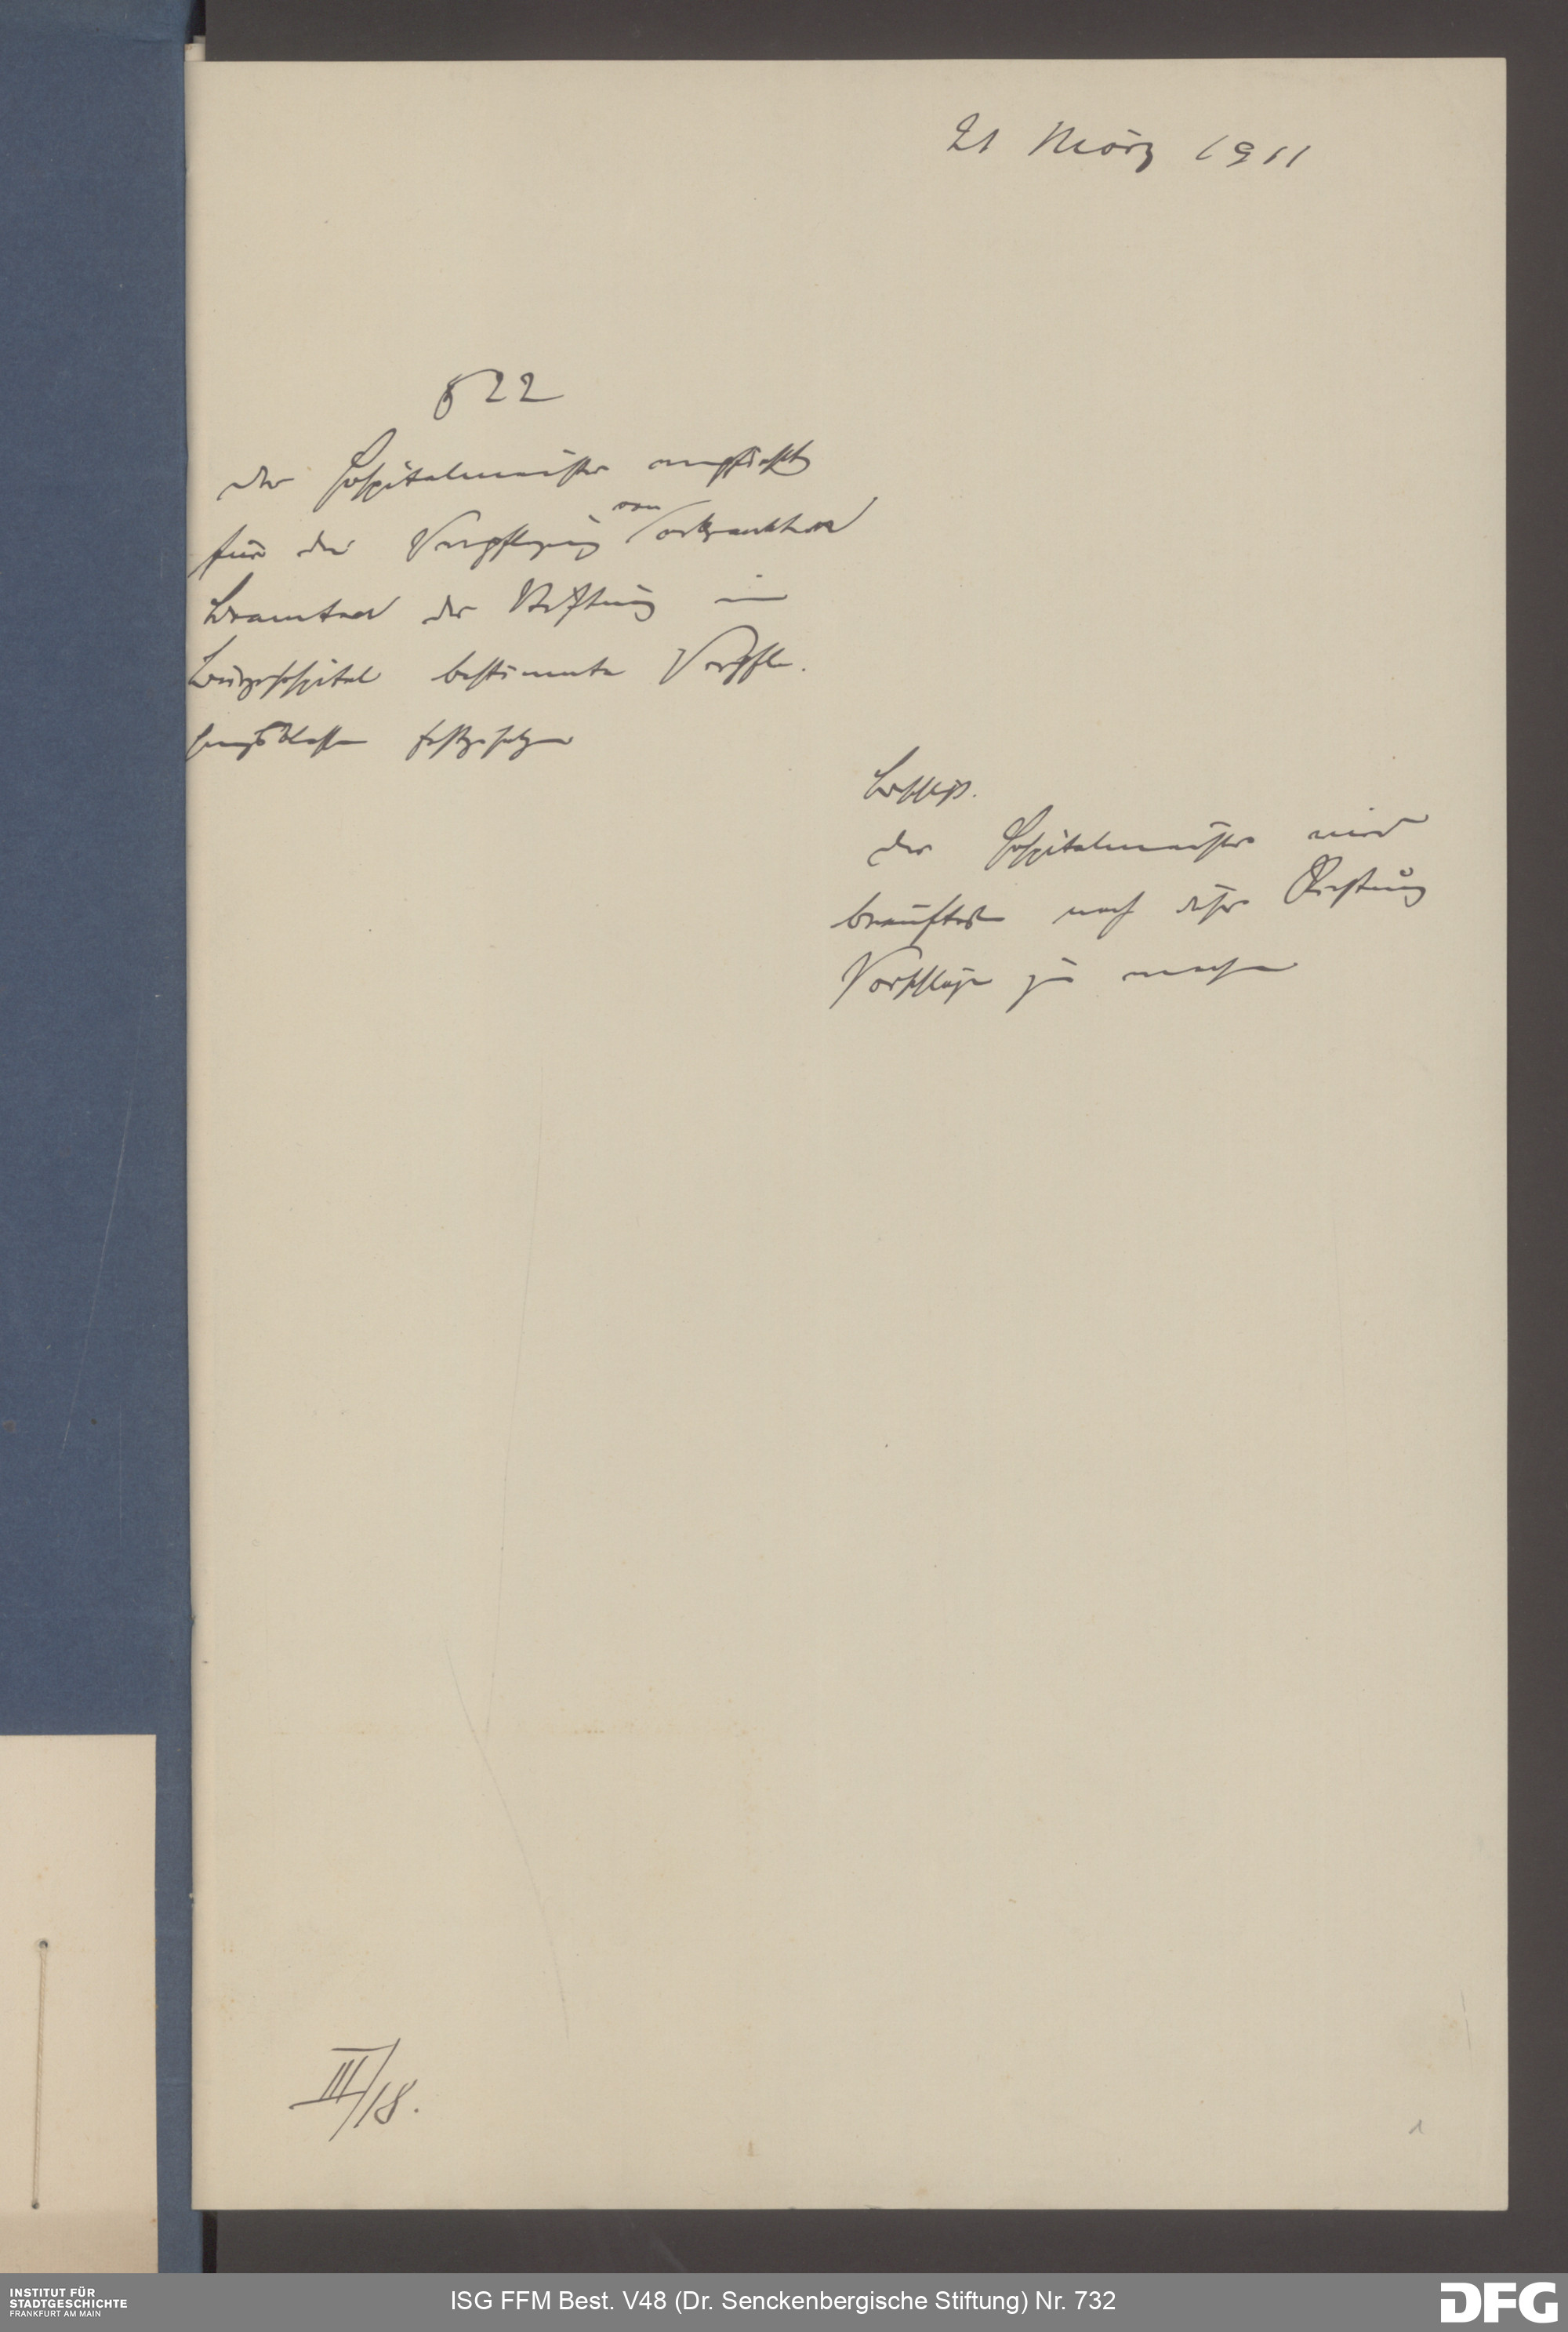 21 März 1911
§ 22
der Hospitalmeister empfiehlt
für die Verpflegung von erkrankten
Beamten der Stiftung im
Bürgerhospital bestimmte Verpfle-
gungsklassen festzusetzen
Beschluß.
der Hospitalmeister wird
beauftragt nach dieser Richtung
Vorschläge zu machen
III/18.
1
INSTITUT FÜR
STADTGESCHICHTE
FRANKFURT AM MAIN
ISG FFM Best. V48 (Dr. Senckenbergische Stiftung) Nr. 732
DFG